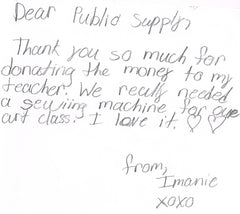 Dear Public Supply,
Thank you so much for
donating the money to my
teacher. We really needed
a sewiing machine for our
art class. I love it. ♡♡
from,
Imanie
xoxo